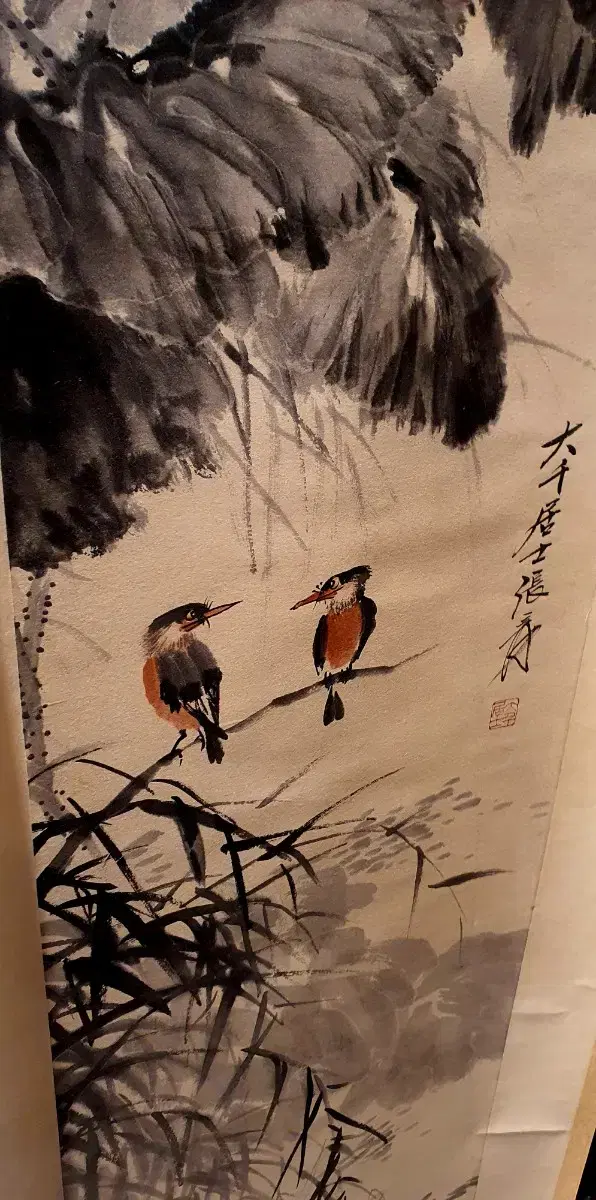 大千居士張爰